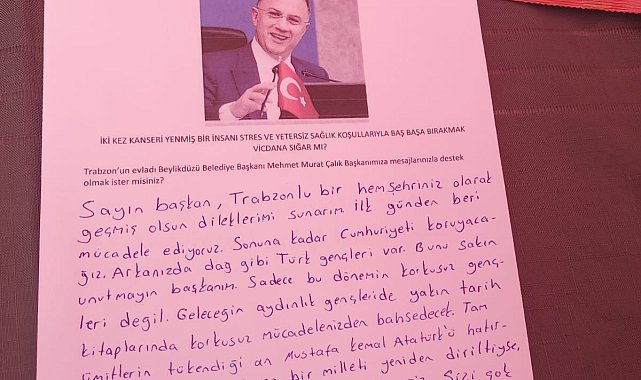 İKİ KEZ KANSERİ YENMİŞ BİR İNSANI STRES VE YETERSİZ SAĞLIK KOŞULLARIYLA BAŞ BAŞA BIRAKMAK
VİCDANA SIĞAR MI?
Trabzon'un evladı Beylikdüzü Belediye Başkanı Mehmet Murat Çalık Başkanımıza mesajlarınızla destek
olmak ister misiniz?
Sayın başkan, Trabzonlu bir hemşehriniz olarak
geçmiş olsun dileklerimi sunarım. İlk günden beri
mücadele ediyoruz. Sonuna kadar Cumhuriyeti koruyaca-
ğız. Arkanızda dağ gibi Türk gençleri var. Bunu sakın
unutmayın başkanım. Sadece bu dönemin korkusuz genç-
leri değil. Geleceğin aydınlık gençleride yakın tarih
kitaplarında korkusuz mücadelenizden bahsedecek. Tam
ümitlerin tükendiği an Mustafa Kemal Atatürk'ü hatır-
bir milleti yeniden diriltiyse,
Sizi çok